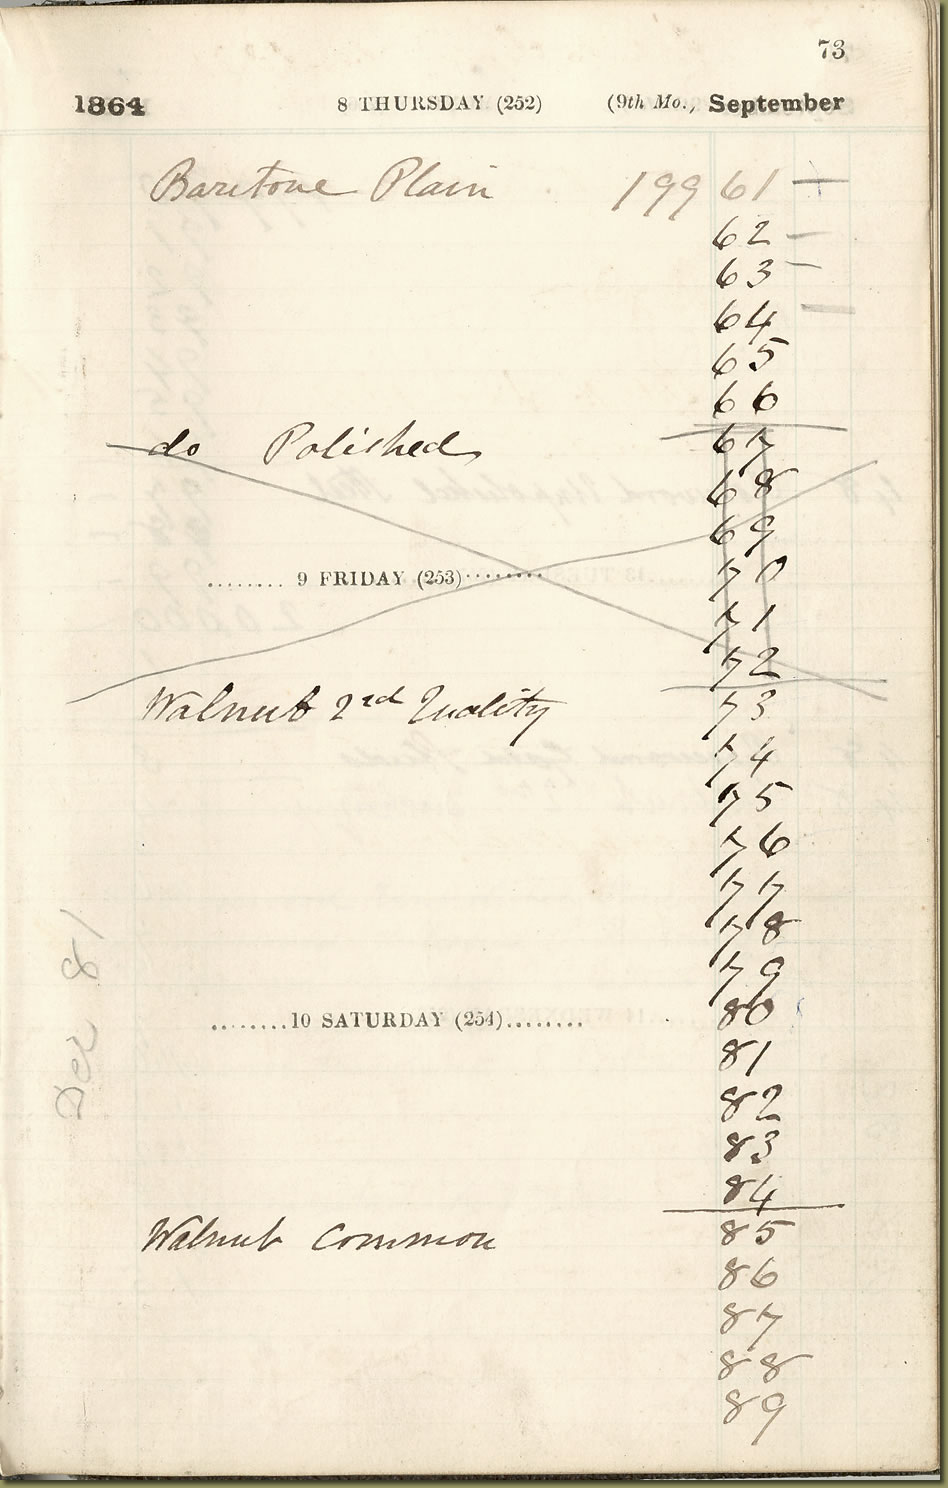 73
1864 8 THURSDAY (252) (9th Mo.) September
Baritone Plain 199 61 —
62 —
63 —
64 —
65
66
do Polished 67
68
69
........ 9 FRIDAY (253) ........ 70
71
72
Walnut 2nd Quality 73
74
75
76
77
78
79
........10 SATURDAY (254)........ 80
81
82
83
84
Walnut Common 85
86
87
88
89
Dec 81